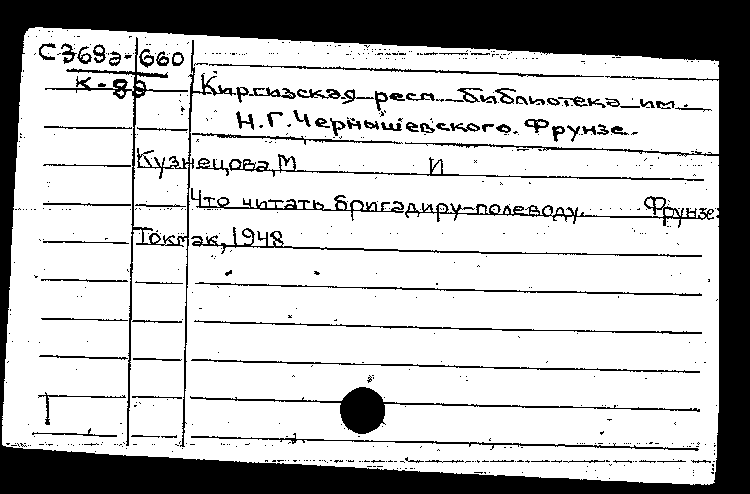 С369а-660
К-89
Киргизская респ. библиотека им.
Н.Г.Чернышевского. Фрунзе.
Кузнецова, М И
Что читать бригадиру-полеводу. Фрунзе-
Токмак, 1948